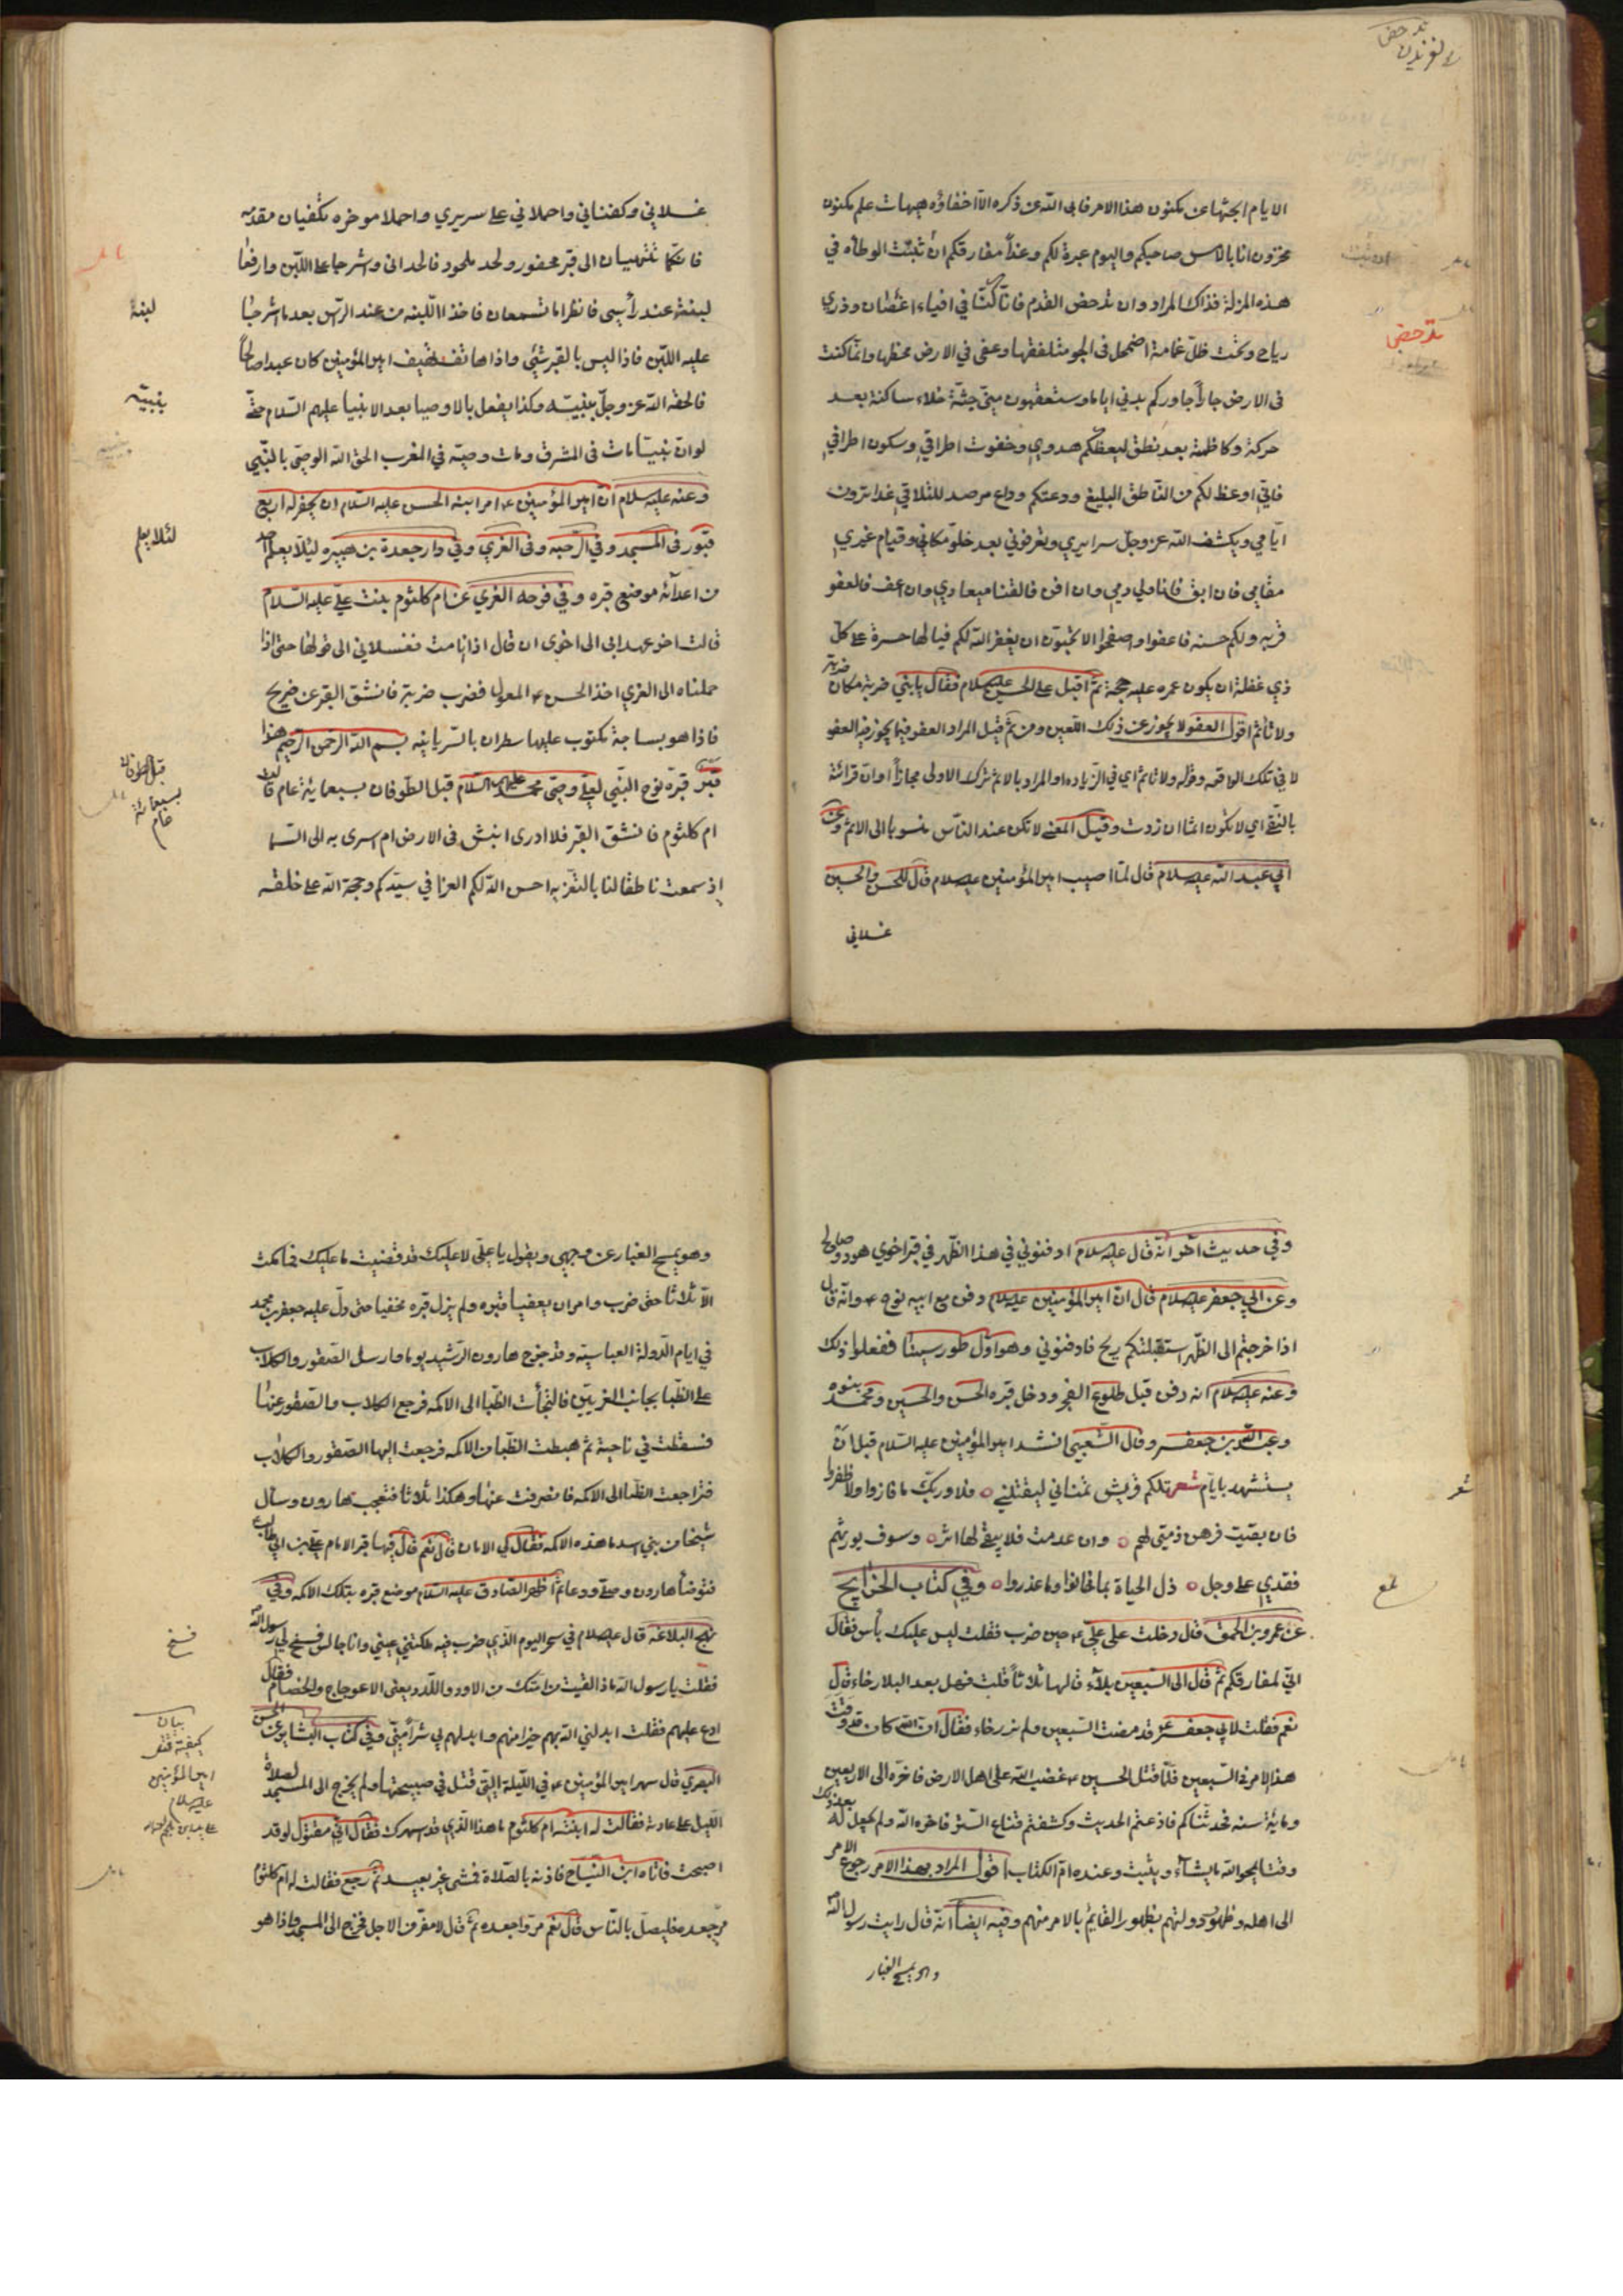 الايام ابحثها عن مكنون هذا الامر فابى الله عز ذكره الا اخفاؤه هيهات علم مكنون
مخزون انا بالامس صاحبكم واليوم عبرة لكم وغداً مفارقكم ان تثبت الوطأة في
هذه المزلة فذاك المراد وان تدحض القدم فانا كنا في افياء اغصان وذرى
رياح وتحت ظل غمامة اضمحل فى الجو متلفقها وعفى في الارض مخطها وانما كنت
فى الارض جاراً جاوركم بدني اياما وستعقبون منى جثة خلاء ساكنة بعد
حركة وكاظمة بعد نطق ليعظكم هدوي وخفوت اطراقي وسكون اطرافي
فانى اوعظ لكم من الناطق البليغ ودعتكم وداع مرصد للتلاقي غدا ترون
ايامي ويكشف الله عز وجل سرايري وتعرفوني بعد خلو مكاني وقيام غيري
مقامي فان ابق فانا ولي دمي وان افن فالفنا ميعادي وان اعف فالعفو
قربه ولكم حسنه فاعفوا واصفحوا الا تحبون ان يغفر الله لكم فيا لها حسرة على كل
ذي غفلة ان يكون عمره عليه حجة ثم اقبل على الحسن عليه السلام فقال يا بني ضربة مكان ضربة
ولا تأثم اقول العفو لا يجوز عن ذلك اللعين ومن ثم قيل المراد العفو فيما يجوز فيه العفو
لا في تلك الواقعه وقوله ولا تأثم اي في الزياده او المراد بالاثم ترك الاولى مجازاً او ان قرائة
بالنفي اي لا تكون اثما ان زدت وقيل المعنى لا تكن عند الناس منسوبا الى الاثم وعن
ابي عبد الله عليه السلام قال لما اصيب امير المؤمنين عليه السلام قال للحسن والحسين
غسلاني
تدحض
غسلاني وكفناني واحملاني على سريري واحملا موخره تكفيان مقدمه
فانكما تنتهيان الى قبر محفور ولحد ملحود فالحداني واشرجا على اللبن وارفعا
لبنة عند رأسي فانظرا ما تسمعان فاخذا اللبنه من عند الراس بعد ما اشرجا
عليه اللبن فاذا ليس بالقبر شئي واذا هاتف يهتف امير المؤمنين كان عبدا صالحاً
فالحقه الله عز وجل بنبيه وكذا يفعل بالاوصيا بعد الانبيا عليهم السلام حتى
لو ان نبيا مات فى المشرق ومات وصيه في المغرب الحق الله الوصى بالنبي
وعنه عليه سلام ان امير المؤمنين ع امر ابنه الحسن عليه السلام ان يحفر له اربع
قبور فى المسجد وفي الرحبه وفى الغري وفي دار جعدة بن هبيره لئلا يعلم احد
من اعدائه موضع قبره وفي فرحه الغري عن ام كلثوم بنت علي عليه السلام
قالت اخر عهد ابى الى اخوى ان قال اذا انا مت فغسلاني الى قولها حتى اذا
حملناه الى الغري اخذ الحسن ع المعول فضرب ضربة فانشق القبر عن ضريح
فاذا هو بساجة مكتوب عليها سطران بالسريانيه بسم الله الرحمن الرحيم هذا
قبر قبره نوح النبي لعلي وصى محمد عليهم السلام قبل الطوفان بسبعماية عام قالت
ام كلثوم فانشق القبر فلا ادرى انبش فى الارض ام اسرى به الى السما
اذ سمعت ناطقا لنا بالتعزيه احسن الله لكم العزا في سيدكم وحجة الله على خلقه
لبنة
بنبيه
لئلا يعلم
قبل الطوفان
بسبعمائة
عام
وفي حديث اخر انه قال عليه سلام ادفنوني في هذا الظهر في قبر اخوي هود وصالح
وعن ابي جعفر عليه سلام قال ان امير المؤمنين عليه سلام دفن مع ابيه نوح ع وانه قال
اذا خرجتم الى الظهر استقبلتكم ريح فادفنوني وهو اول طور سينا ففعلوا ذلك
وعنه عليه سلام انه دفن قبل طلوع الفجر ودخل قبره الحسن والحسين ومحمد بنوه
وعبد الله بن جعفر وقال الشعبي انشد امير المؤمنين عليه السلام قبل ان
يستشهد بايام شعر تلكم قريش تمناني ليقتلني ه فلا وربك ما فازوا ولا ظفروا
فان بقيت فرهن ذمتي لهم ه وان عدمت فلا يبقى لها اثر ه وسوف يورثهم
فقدي على وجل ه ذل الحياة بما خانوا وما غدروا ه وفي كتاب الخرايج
عن عمرو بن الحمق قال دخلت على علي ع حين ضرب فقلت ليس عليك بأس فقال
اني لمفارقكم ثم قال الى السبعين بلآء قالها ثلاثاً قلت فهل بعد البلا رخاء قال
نعم فقلت لابي جعفر ع قد مضت السبعين ولم نر رخاء فقال ان الله كان قد وقت
هذا الامر فى السبعين فلما قتل الحسين ع غضب الله على اهل الارض فاخره الى الاربعين
وماية سنه فحدثناكم فاذعتم الحديث وكشفتم قناع الستر فاخره الله ولم يجعل له بعد ذلك
وقتا يمحو الله ما يشآء ويثبت وعنده ام الكتاب اقول المراد بهذا الامر رجوع الامر
الى اهله وظهور دولتهم بظهور القايم بالامر منهم وفيه ايضا انه قال رايت رسول الله
وهو يمسح الغبار
شعر
وهو يمسح الغبار عن وجهي ويقول يا علي لا عليك قد قضيت ما عليك فما مكث
الا ثلاثا حتى ضرب وامر ان يعفيا قبره ولم يزل قبره مخفيا حتى دل عليه جعفر بن محمد
في ايام الدولة العباسيه وقد خرج هارون الرشيد يوما وارسل الصقور والكلاب
على الظبا بجانب الغريين فالتجأت الظبا الى الاكمه فرجع الكلاب والصقور عنها
فسقطت في ناحية ثم هبطت الظبا من الاكمه فرجعت اليها الصقور والكلاب
فتراجعت الظبا الى الاكمه فانصرفت عنها وهكذا ثلاثا فتعجب هارون وسأل
شيخا من بني اسد ما هذه الاكمه فقال لي الامان قال نعم قال فيها قبر الامام علي بن ابي طالب
فتوضأ هارون وصلى ودعا ثم اظهر الصادق عليه السلام موضع قبره بتلك الاكمه وفي
نهج البلاغه قال عليه سلام في سحر اليوم الذي ضرب فيه ملكتني عيني وانا جالس فسنح لي رسول الله
فقلت يا رسول الله ماذا لقيت من امتك من الاود واللدد يعنى الاعوجاج والخصام فقال
ادع عليهم فقلت ابدلني الله بهم خيرا منهم وابدلهم بي شراً مني وفي كتاب البشاير عن الحسن
البصري قال سهر امير المؤمنين ع في الليلة التي قتل في صبيحتها ولم يخرج الى المسجد لصلاة
الليل على عادته فقالت له ابنته ام كلثوم ما هذا الذي قد اسهرك فقال اني مقتول لو قد
اصبحت فاتاه ابن النباح فاذنه بالصلاة فمشى غير بعيد ثم رجع فقالت له ام كلثوم
مر جعده فليصل بالناس قال نعم مروا جعده ثم قال لا مفر من الاجل فخرج الى المسجد واذا هو
فسنح
بيان
كيفية قتل
امير المؤمنين
عليه سلام